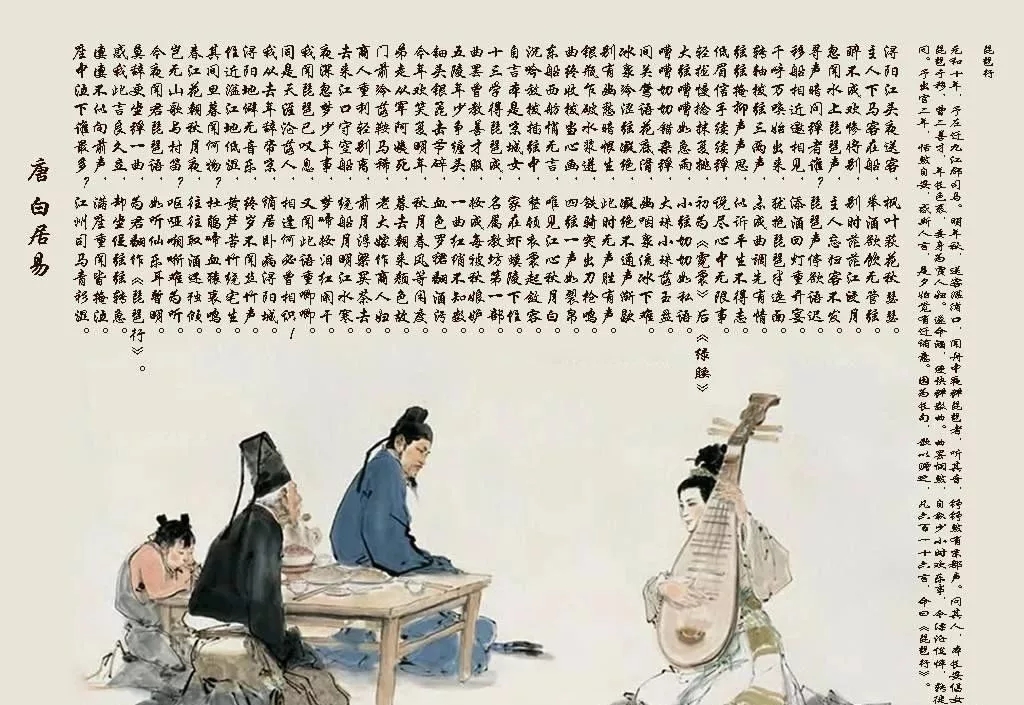 琵琶行
元和十年，予左迁九江郡司马。明年秋，送客湓浦口，闻舟中夜弹琵琶者，听其音，铮铮然有京都声。问其人，本长安倡女
琵琶于穆、曹二善才，年长色衰，委身为贾人妇。遂命酒，使快弹数曲。曲罢悯然，自叙少小时欢乐事，今漂沦憔悴，转徙
间。予出官二年，恬然自安，感斯人言，是夕始觉有迁谪意。因为长句，歌以赠之，凡六百一十六言，命曰《琵琶行》。
浔阳江头夜送客，枫叶荻花秋瑟瑟。
主人下马客在船，举酒欲饮无管弦。
醉不成欢惨将别，别时茫茫江浸月。
忽闻水上琵琶声，主人忘归客不发。
寻声暗问弹者谁？琵琶声停欲语迟。
移船相近邀相见，添酒回灯重开宴。
千呼万唤始出来，犹抱琵琶半遮面。
转轴拨弦三两声，未成曲调先有情。
弦弦掩抑声声思，似诉平生不得志。
低眉信手续续弹，说尽心中无限事。
轻拢慢捻抹复挑，初为《霓裳》后《绿腰》。
大弦嘈嘈如急雨，小弦切切如私语。
嘈嘈切切错杂弹，大珠小珠落玉盘。
间关莺语花底滑，幽咽泉流冰下难。
冰泉冷涩弦凝绝，凝绝不通声渐歇。
别有幽愁暗恨生，此时无声胜有声。
银瓶乍破水浆迸，铁骑突出刀枪鸣。
曲终收拨当心画，四弦一声如裂帛。
东船西舫悄无言，唯见江心秋月白。
沉吟放拨插弦中，整顿衣裳起敛容。
自言本是京城女，家在虾蟆陵下住。
十三学得琵琶成，名属教坊第一部。
曲罢曾教善才服，妆成每被秋娘妒。
五陵年少争缠头，一曲红绡不知数。
钿头银篦击节碎，血色罗裙翻酒污。
今年欢笑复明年，秋月春风等闲度。
弟走从军阿姨死，暮去朝来颜色故。
门前冷落鞍马稀，老大嫁作商人妇。
商人重利轻别离，前月浮梁买茶去。
去来江口守空船，绕船月明江水寒。
夜深忽梦少年事，梦啼妆泪红阑干。
我闻琵琶已叹息，又闻此语重唧唧。
同是天涯沦落人，相逢何必曾相识！
我从去年辞帝京，谪居卧病浔阳城。
浔阳地僻无音乐，终岁不闻丝竹声。
住近湓江地低湿，黄芦苦竹绕宅生。
其间旦暮闻何物？杜鹃啼血猿哀鸣。
春江花朝秋月夜，往往取酒还独倾。
岂无山歌与村笛？呕哑嘲哳难为听。
今夜闻君琵琶语，如听仙乐耳暂明。
莫辞更坐弹一曲，为君翻作《琵琶行》。
感我此言良久立，却坐促弦弦转急。
凄凄不似向前声，满座重闻皆掩泣。
座中泣下谁最多？江州司马青衫湿。
唐 白居易